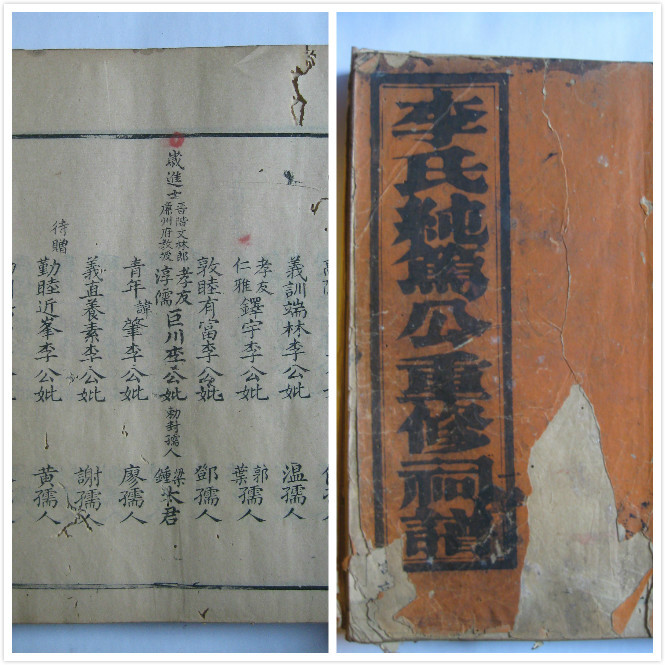 李氏純篤公重修祠譜
義訓端林李公妣溫孺人
孝友仁雅鐸宇李公妣郭葉孺人
敦睦有富李公妣鄧孺人
歲進士晉階文林郎廉州府教授孝友淳儒巨川李公妣勅封孺人梁鍾太君
青年諱肇李公妣廖孺人
義直養素李公妣謝孺人
待贈勤睦近峯李公妣黃孺人